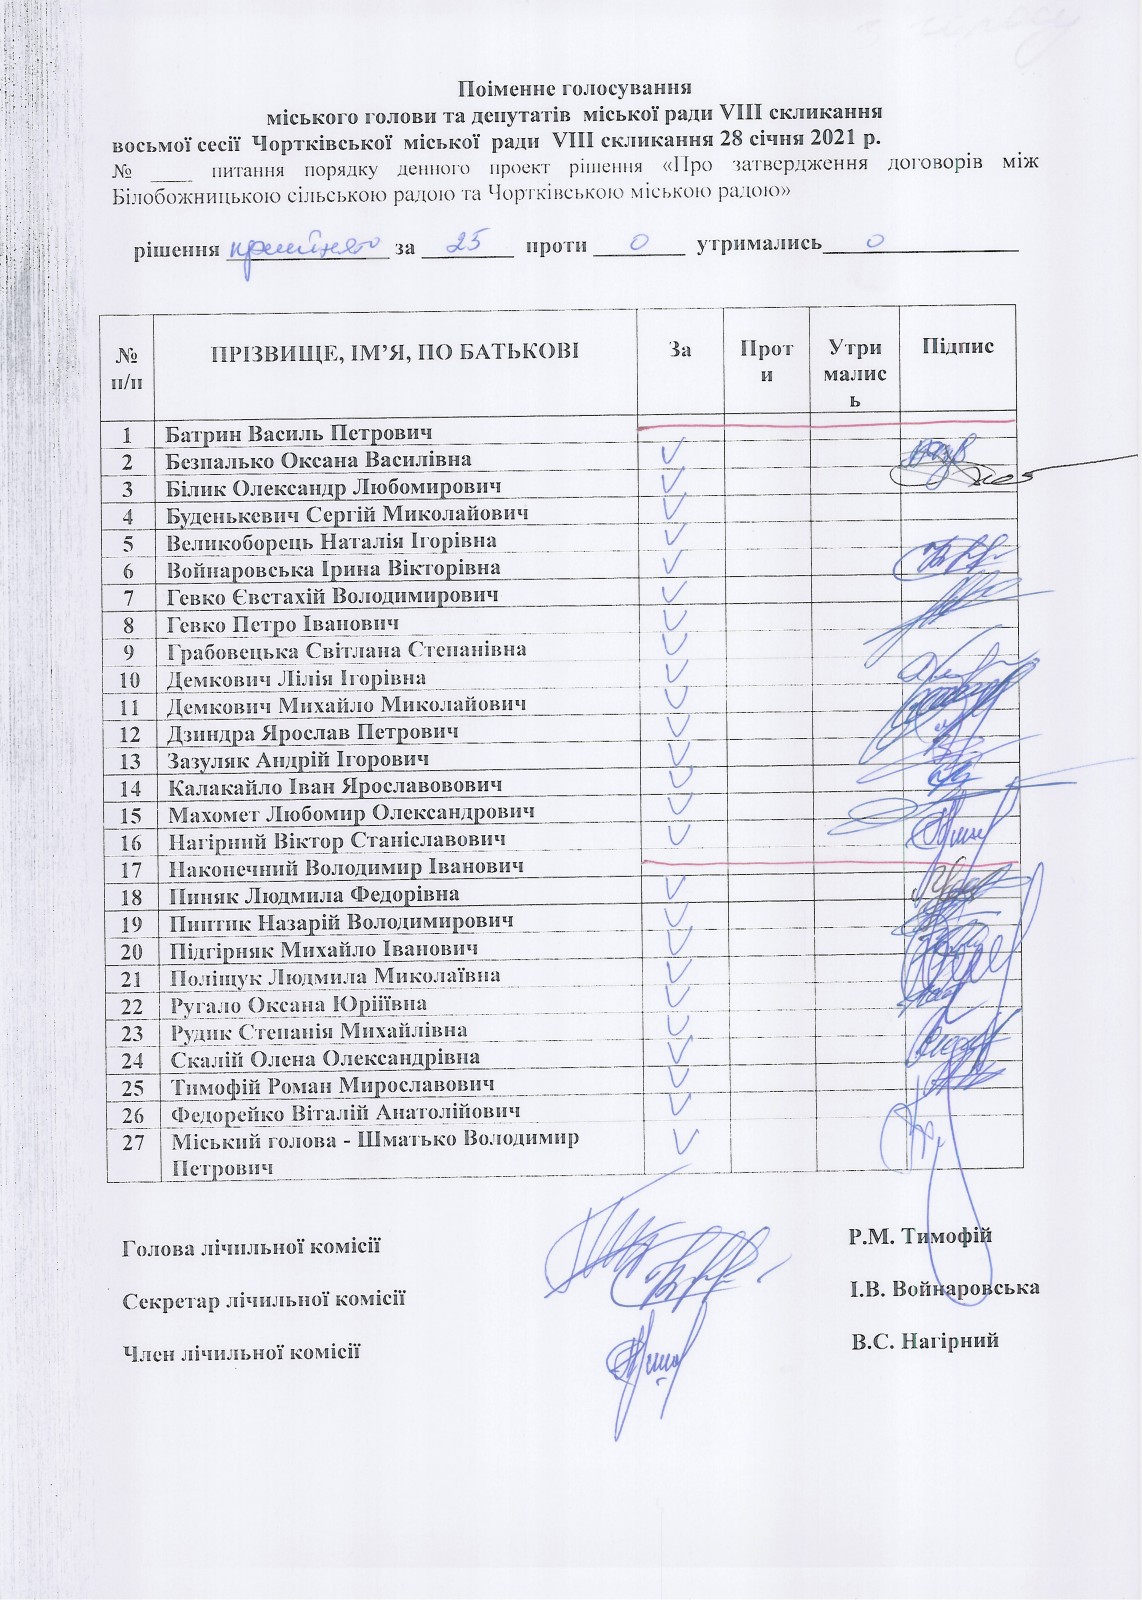 Поіменне голосування
міського голови та депутатів міської ради VIII скликання
восьмої сесії Чортківської міської ради VIII скликання 28 січня 2021 р.
№ ____ питання порядку денного проект рішення «Про затвердження договорів між
Білобожницькою сільською радою та Чортківською міською радою»
рішення прийнято за 25 проти 0 утримались 0
№ п/п ПРІЗВИЩЕ, ІМ’Я, ПО БАТЬКОВІ За Проти Утрималися Підпис
1 Батрин Василь Петрович
2 Безпалько Оксана Василівна
3 Білик Олександр Любомирович
4 Буденькевич Сергій Миколайович
5 Великоборець Наталія Ігорівна
6 Войнаровська Ірина Вікторівна
7 Гевко Євстахій Володимирович
8 Гевко Петро Іванович
9 Грабовецька Світлана Степанівна
10 Демкович Лілія Ігорівна
11 Демкович Михайло Миколайович
12 Дзиндра Ярослав Петрович
13 Зазуляк Андрій Ігорович
14 Калакайло Іван Ярославовович
15 Махомет Любомир Олександрович
16 Нагірний Віктор Станіславович
17 Наконечний Володимир Іванович
18 Пиняк Людмила Федорівна
19 Пинтик Назарій Володимирович
20 Підгірняк Михайло Іванович
21 Поліщук Людмила Миколаївна
22 Ругало Оксана Юріїївна
23 Рудик Степанія Михайлівна
24 Скалій Олена Олександрівна
25 Тимофій Роман Мирославович
26 Федорейко Віталій Анатолійович
27 Міський голова - Шматько Володимир
Петрович
Голова лічильної комісії Р.М. Тимофій
Секретар лічильної комісії І.В. Войнаровська
Член лічильної комісії В.С. Нагірний